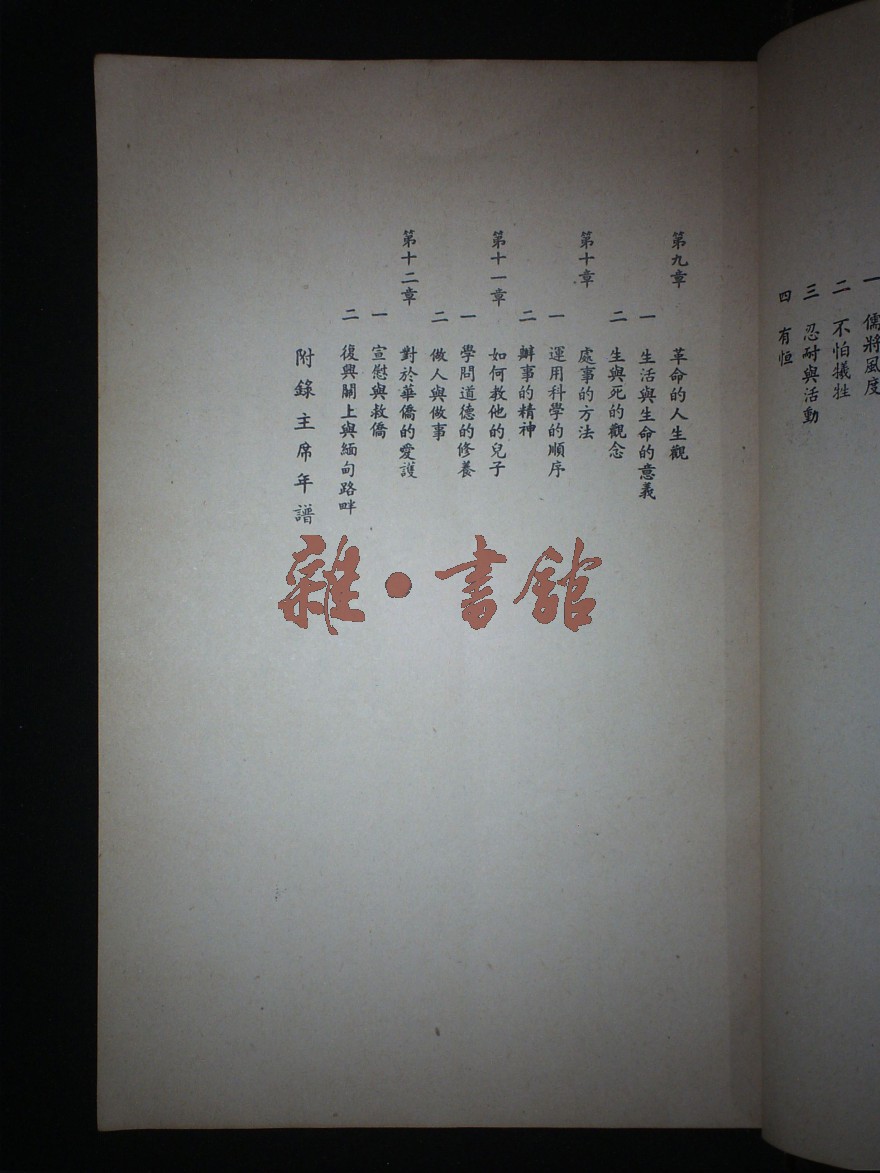 一 儒將風度
二 不怕犠牲
三 忍耐與活動
四 有恒
第九章 革命的人生觀
一 生活與生命的意義
二 生與死的觀念
第十章 處事的方法
一 運用科學的順序
二 辦事的精神
第十一章 如何教他的兒子
一 學問道德的修養
二 做人與做事
第十二章 對於華僑的愛護
一 宣慰與救僑
二 復興關上與緬甸路畔
附錄主席年譜
雜·書館